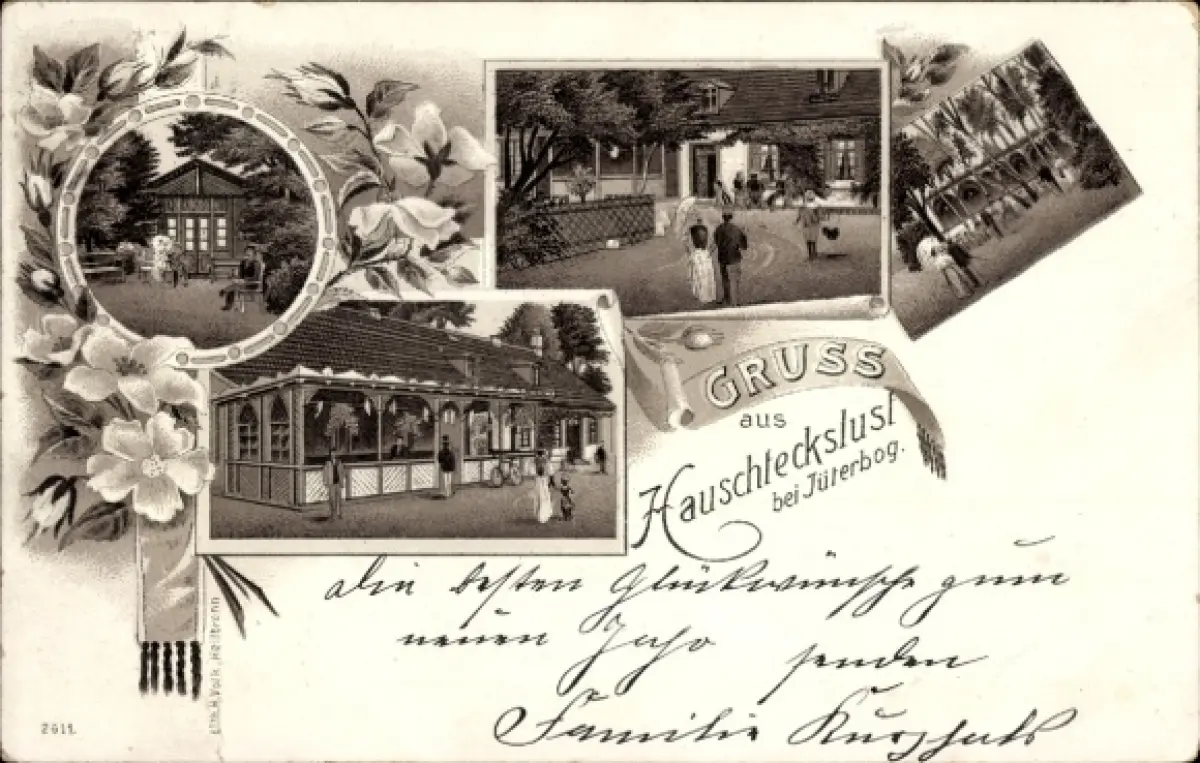 GRUSS
aus
Hauschteckslust
bei Jüterbog.
Die besten Glückwünsche zum
neuen Jahr senden
Familie
Lith. H. Volk, Heilbronn
2611.